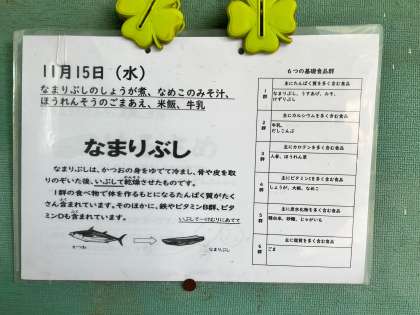 11月15日（水）
なまりぶしのしょうが煮、なめこのみそ汁、
ほうれんそうのごまあえ、米飯、牛乳
なまりぶし
なまりぶしは、かつおの身をゆでて冷まし、骨や皮を取
りのぞいた後、いぶして乾燥させたものです。
1群の食べ物で体を作るもとになるたんぱく質がたく
さん含まれています。そのほかに、鉄やビタミンB群、ビタ
ミンDも含まれています。
いぶして…けむりにあてて
かつお
なまりぶし
6つの基礎食品群
1群
主にたんぱく質を多く含む食品
なまりぶし、うすあげ、みそ、
けずりぶし
2群
主にカルシウムを多く含む食品
牛乳、
だしこんぶ
3群
主にカロテンを多く含む食品
人参、ほうれん草
4群
主にビタミンCを多く含む食品
しょうが、大根、なめこ
5群
主に炭水化物を多く含む食品
精白米、砂糖、じゃがいも
6群
主に脂質を多く含む食品
ごま